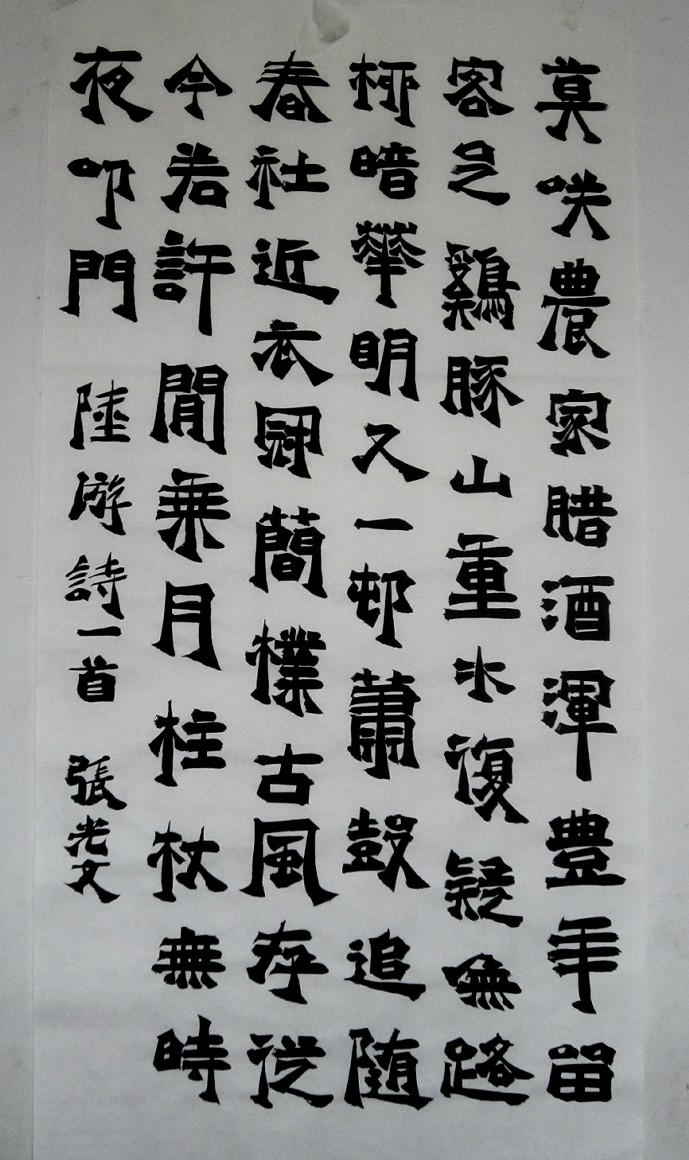 莫咲農家腊酒渾豊年留
客足鷄豚山重水復疑無路
柳暗華明又一邨蕭鼓追随
春社近衣冠簡樸古風存従
今若許閒乗月柱杖無時
夜叩門 陸游詩一首 張光文